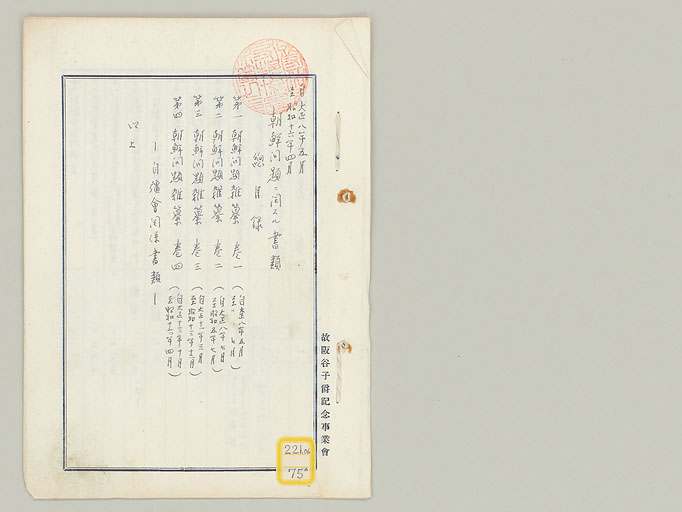 自大正八年五月
至昭和十二年四月
朝鮮问題ニ関スル書類
總目録
第一 朝鮮问題雑纂 巻一 (自大正八年五月 至〃 七月)
第二 朝鮮问題雑纂 巻二 (自大正八年七月 至昭和五年七月)
第三 朝鮮问題雑纂 巻三 (自大正十一年三月 至昭和十二年十一月)
第四 朝鮮问題雑纂 巻四 (自大正十三年十月 至昭和十二年四月)
以上
―自彊會関係書類―
故阪谷子爵記念事業會
221.06
75